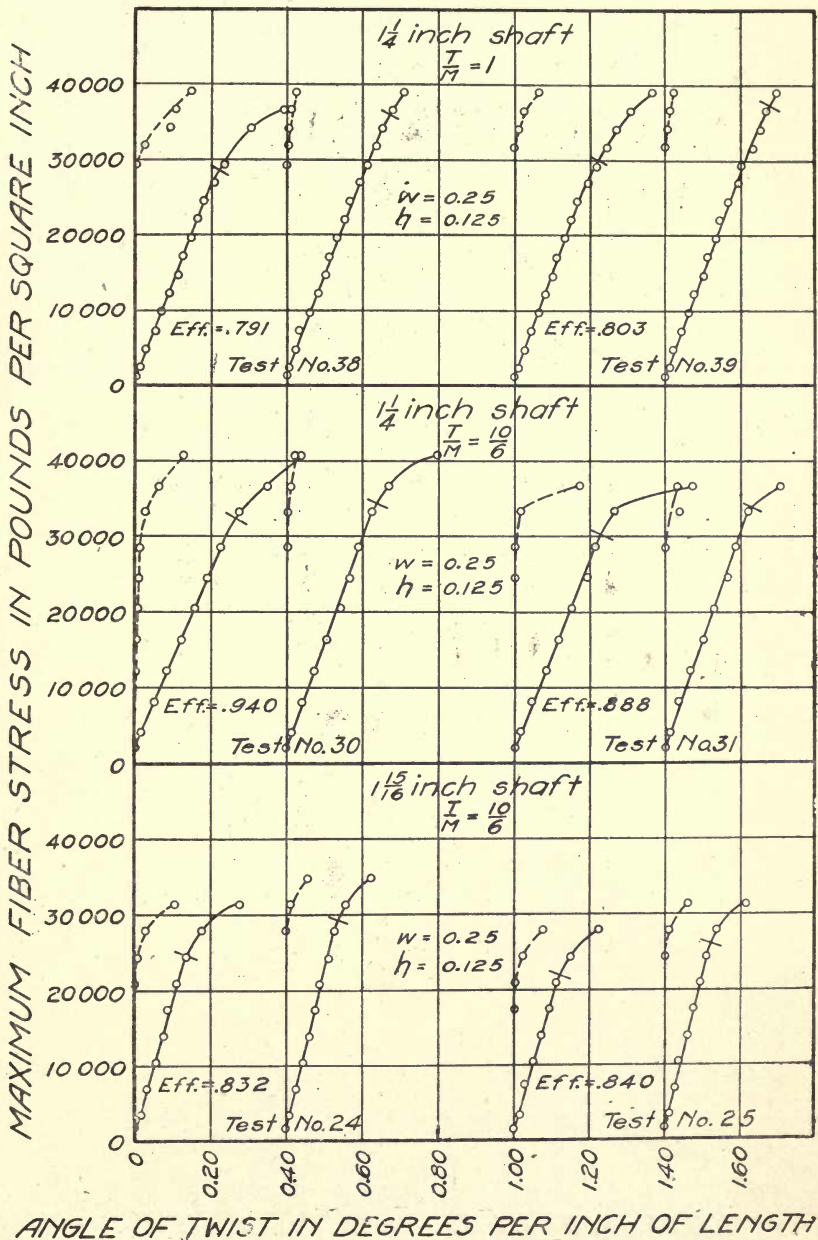 MAXIMUM FIBER STRESS IN POUNDS PER SQUARE INCH
1 1/4 inch shaft
T/M = 1
40000
30000
20000
10000
0
w = 0.25
h = 0.125
Eff.=.791
Test No.38
Eff.=.803
Test No.39
1 1/4 inch shaft
T/M = 10/6
40000
30000
20000
10000
0
w = 0.25
h = 0.125
Eff.=.940
Test No.30
Eff.=.888
Test No.31
1 15/16 inch shaft
T/M = 10/6
40000
30000
20000
10000
0
w = 0.25
h = 0.125
Eff.=.832
Test No.24
Eff.=.840
Test No.25
0 0.20 0.40 0.60 0.80 1.00 1.20 1.40 1.60
ANGLE OF TWIST IN DEGREES PER INCH OF LENGTH